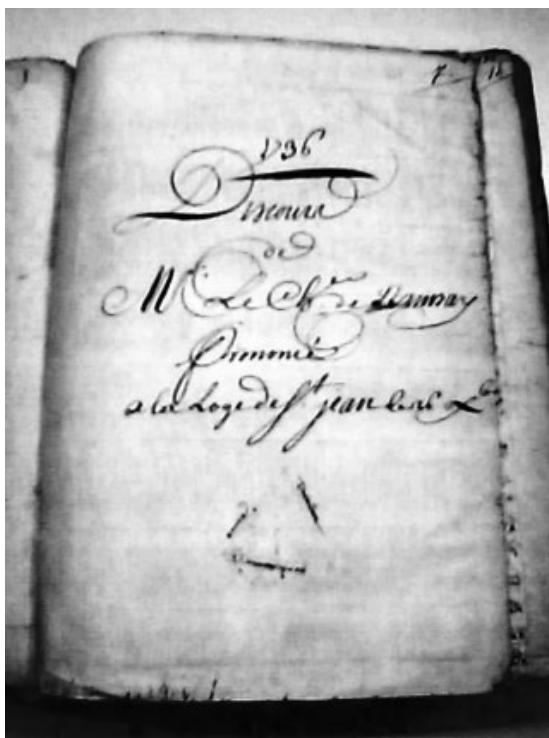 1736
Discours
de
Mr. Le Ch.er de Ramsay
Prononcé
a la Loge de St. jean le 26 Xbre